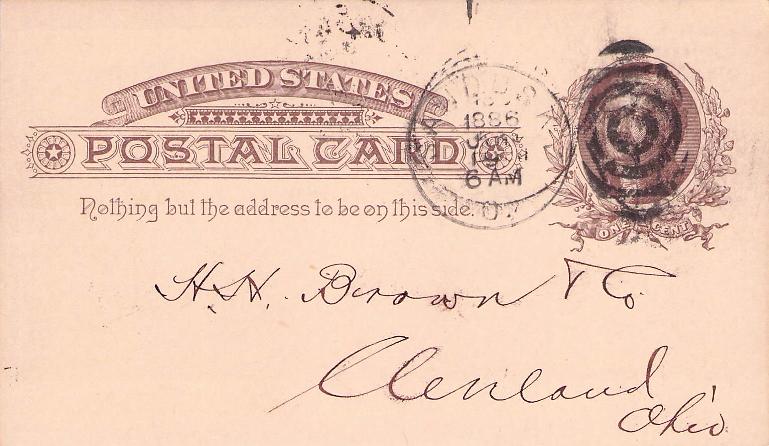 UNITED STATES
POSTAL CARD
Nothing but the address to be on this side.
SANDUSKY
1886
6 AM
O.
ONE CENT
H. H. Brown & Co
Cleveland
Ohio